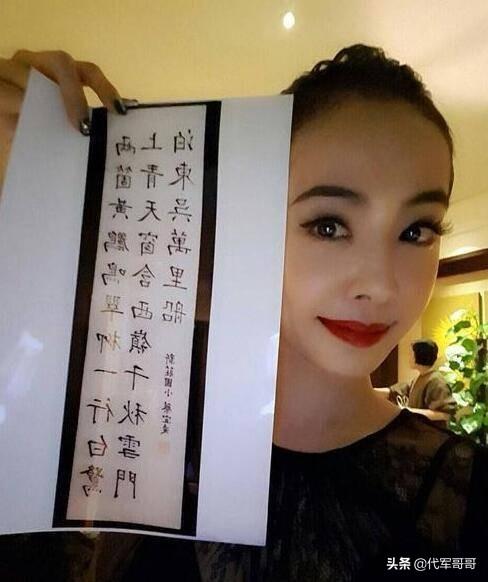 兩箇黃鸝鳴翠柳一行白鷺
上青天窗含西嶺千秋雪門
泊東吳萬里船
新莊國小 蔡宜凌
头条 @代军哥哥